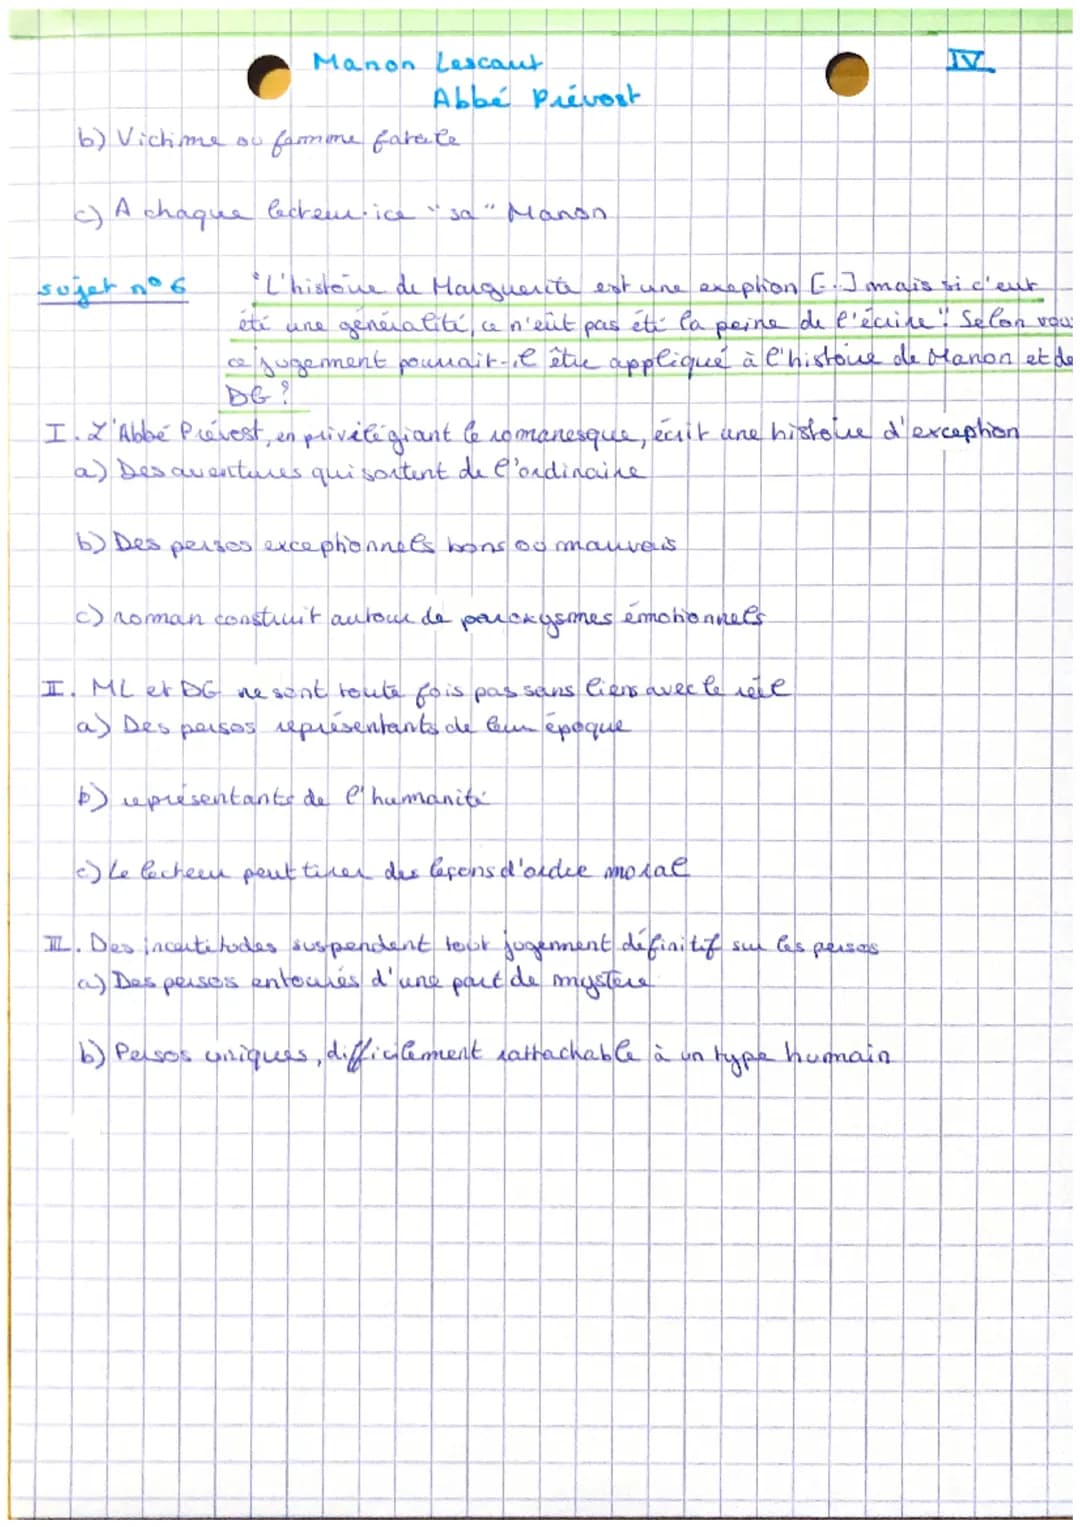 Manon Lescaut
IV
Abbé Prévost
b) Victime ou femme fatale
c) A chaque lecteur·ice "sa" Manon
sujet n° 6 "L'histoire de Marguerite est une exeption [...] mais si c'eut
été une généralité, ce n'eût pas été la peine de l'écrire". Selon vous
ce jugement pourrait-il être appliqué à l'histoire de Manon et de
DG ?
I. L'Abbé Prévost, en privilégiant le romanesque, écrit une histoire d'exception
a) Des aventures qui sortent de l'ordinaire
b) Des persos exceptionnels bons ou mauvais
c) roman construit autour de paroxysmes émotionnels
II. ML et DG ne sont toute fois pas sans liens avec le réel
a) Des persos représentants de leur époque
b) représentants de l'humanité
c) Le lecteur peut tirer des leçons d'ordre moral
III. Des incertitudes suspendent tout jugement définitif sur les persos
a) Des persos entourés d'une part de mystère
b) Persos uniques, difficilement rattachable à un type humain